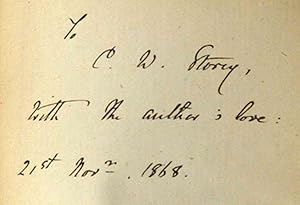 To
C. W. Storey,
with the author's love:
21st Novr. 1868.